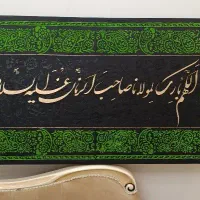 اللهم بارک لمولانا صاحب الزمان علیه السلام